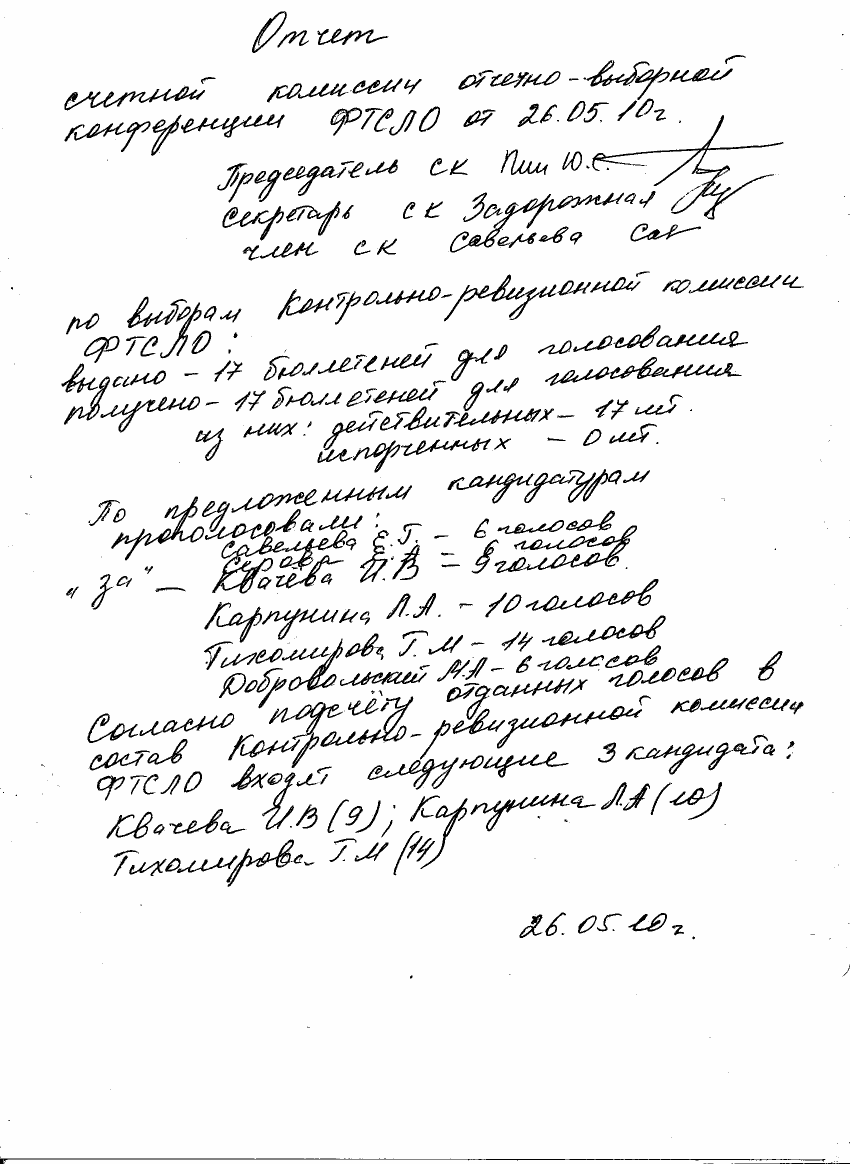 Отчет
счетной комиссии отчетно-выборной
конференции ФТСЛО от 26.05.10г.
Председатель СК Пиш Ю.С.
Секретарь СК Задорожная
член СК Савельева Сав
по выборам Контрольно-ревизионной комиссии
ФТСЛО:
выдано - 17 бюллетеней для голосования
получено - 17 бюллетеней для голосования
из них: действительных - 17 шт.
испорченных - 0 шт.
По предложенным кандидатурам
проголосовали:
Савельева Е.Г. - 6 голосов
Серова Е.А - 6 голосов
"за" - Квачёва И.В - 9 голосов.
Карпунина Л.А. - 10 голосов
Тихомирова Г.М - 14 голосов
Добровольский М.А - 6 голосов
Согласно подсчёту отданных голосов в
состав Контрольно-ревизионной комиссии
ФТСЛО входят следующие 3 кандидата:
Квачева И.В (9); Карпунина Л.А (10)
Тихомирова Г.М (14)
26.05.10 г.